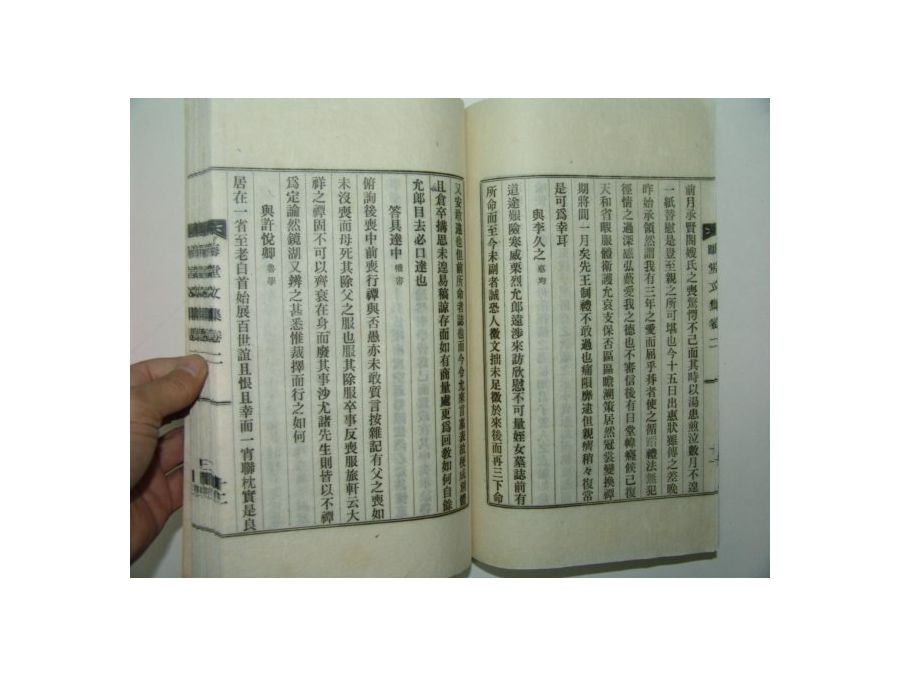 前月承賢閤嫂氏之喪驚愕不已而其時以湯患煎泣數月不遑
一紙替慰是豈至親之所可堪也今十五日出惠狀雖傳之差晚
昨始承領然謂我有三年之愛而屈乎莽者使之循蹈禮法無犯
徑情之過深感弘薇愛我之德也不審信後有日堂幃癠候已復
天和省眼服體衛護允哀支保否區區瞻溯策居然冠裳變換禫
期將間一月矣先王制禮不敢過也痛隕靡逮但親癠稍々復常
是可爲幸耳
與李久之
道途艱險寒威栗烈允郎遠涉來訪欣慰不可量姪女墓誌前有
所命而至今未副者誠恐人微文拙未足徵於來後而再三下命
又安敢違也但前所命者誌也而今允來言墓表故便
且倉卒搆思未遑易稿諒存而如有商量處更爲回教如何自餘
允郎目去必口達也
答具達中
俯詢後喪中前喪行禫與否愚亦未敢質言按雜記有父之喪如
未沒喪而母死其除父之服也服其除服卒事反喪服旅軒云大
祥之禫固不可以齊衰在身而廢其事沙尤諸先生則皆以不禫
爲定論然鏡湖又辨之甚悉惟裁擇而行之如何
與許悅卿
居在一省至老白首始展百世誼且恨且幸面一宵聯枕實是良